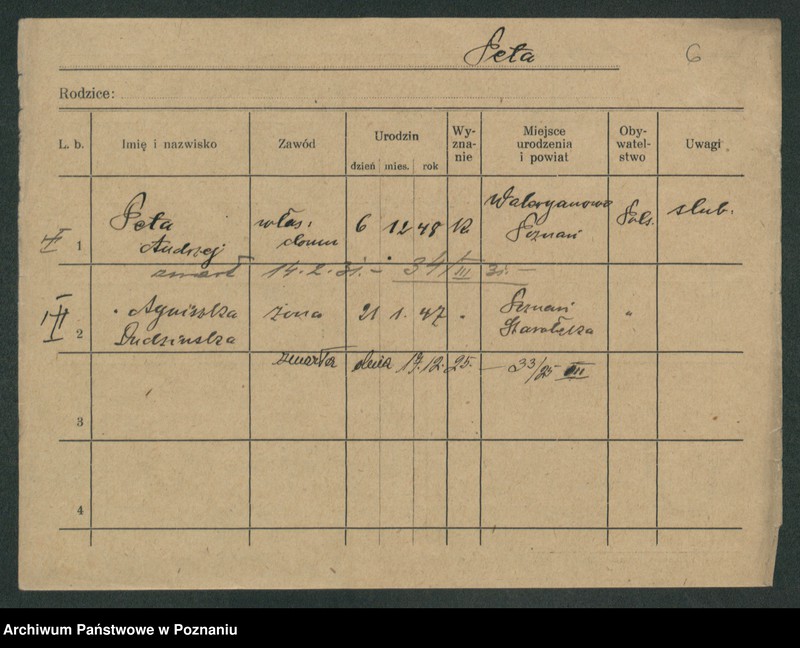 Peta 6
Rodzice:
L. b. Imię i nazwisko Zawód Urodzin dzień mies. rok Wy-zna-nie Miejsce urodzenia i powiat Oby-watel-stwo Uwagi
1 Peta Andrzej włas. domu 6 12 48 K Waleryanowo Poznań Pols. ślub.
zmarł 14.2.31. – 34/III 31. –
2 Agnieszka Dudzinska żona 21 1. 47 " Poznań Starołęcka "
zmarła dnia 17.12.25. – 33/25 III
3
4
Archiwum Państwowe w Poznaniu